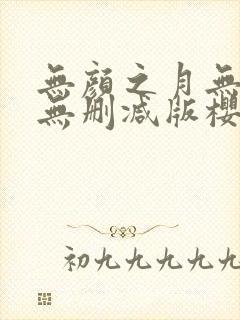 無顏之月無
無删减版櫻
初九九九九九